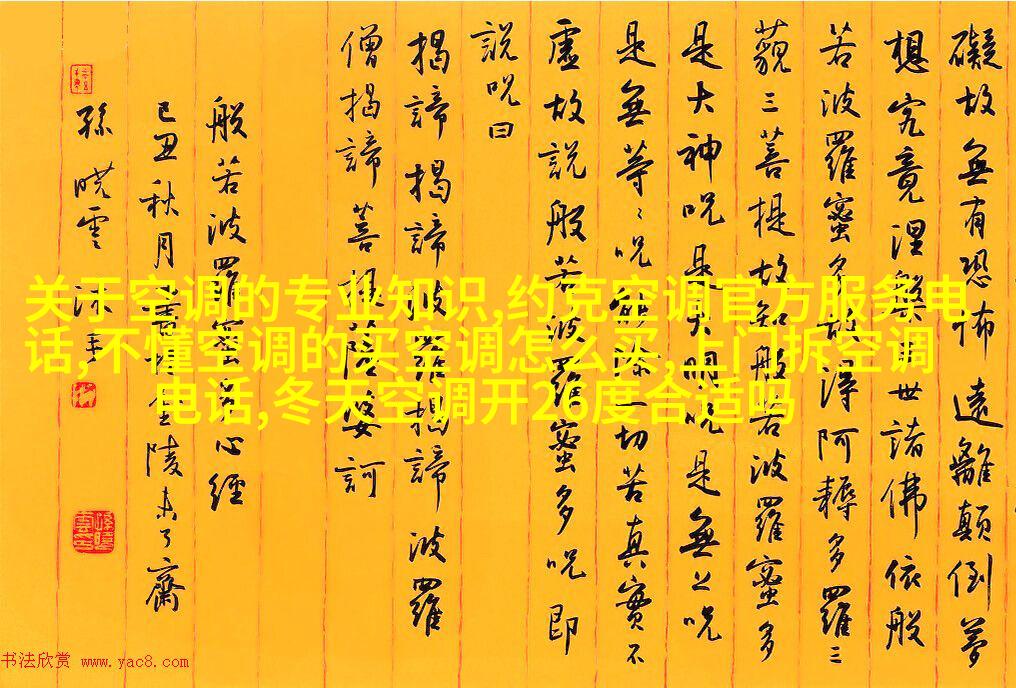 礙故無有恐怖遠離顛倒夢
想究竟涅槃三世諸佛依般
若波羅蜜多故得阿耨多羅三
藐三菩提故知般若波羅蜜多
是大神咒是大明咒是無上咒
是無等〻咒能除一切苦真實不
虛故說般若波羅蜜多咒即
說咒曰
揭諦揭諦波羅揭諦波羅
僧揭諦菩提薩婆訶
般若波羅蜜多心經
己丑秋月 金陵未了齋
孫曉雲沐手
关于空调的专业知识,约克空调官方服务电
话,不懂空调的买空调怎么买,上门拆空调
电话,冬天空调开26度合适吗
书法欣赏 www.yac8.com